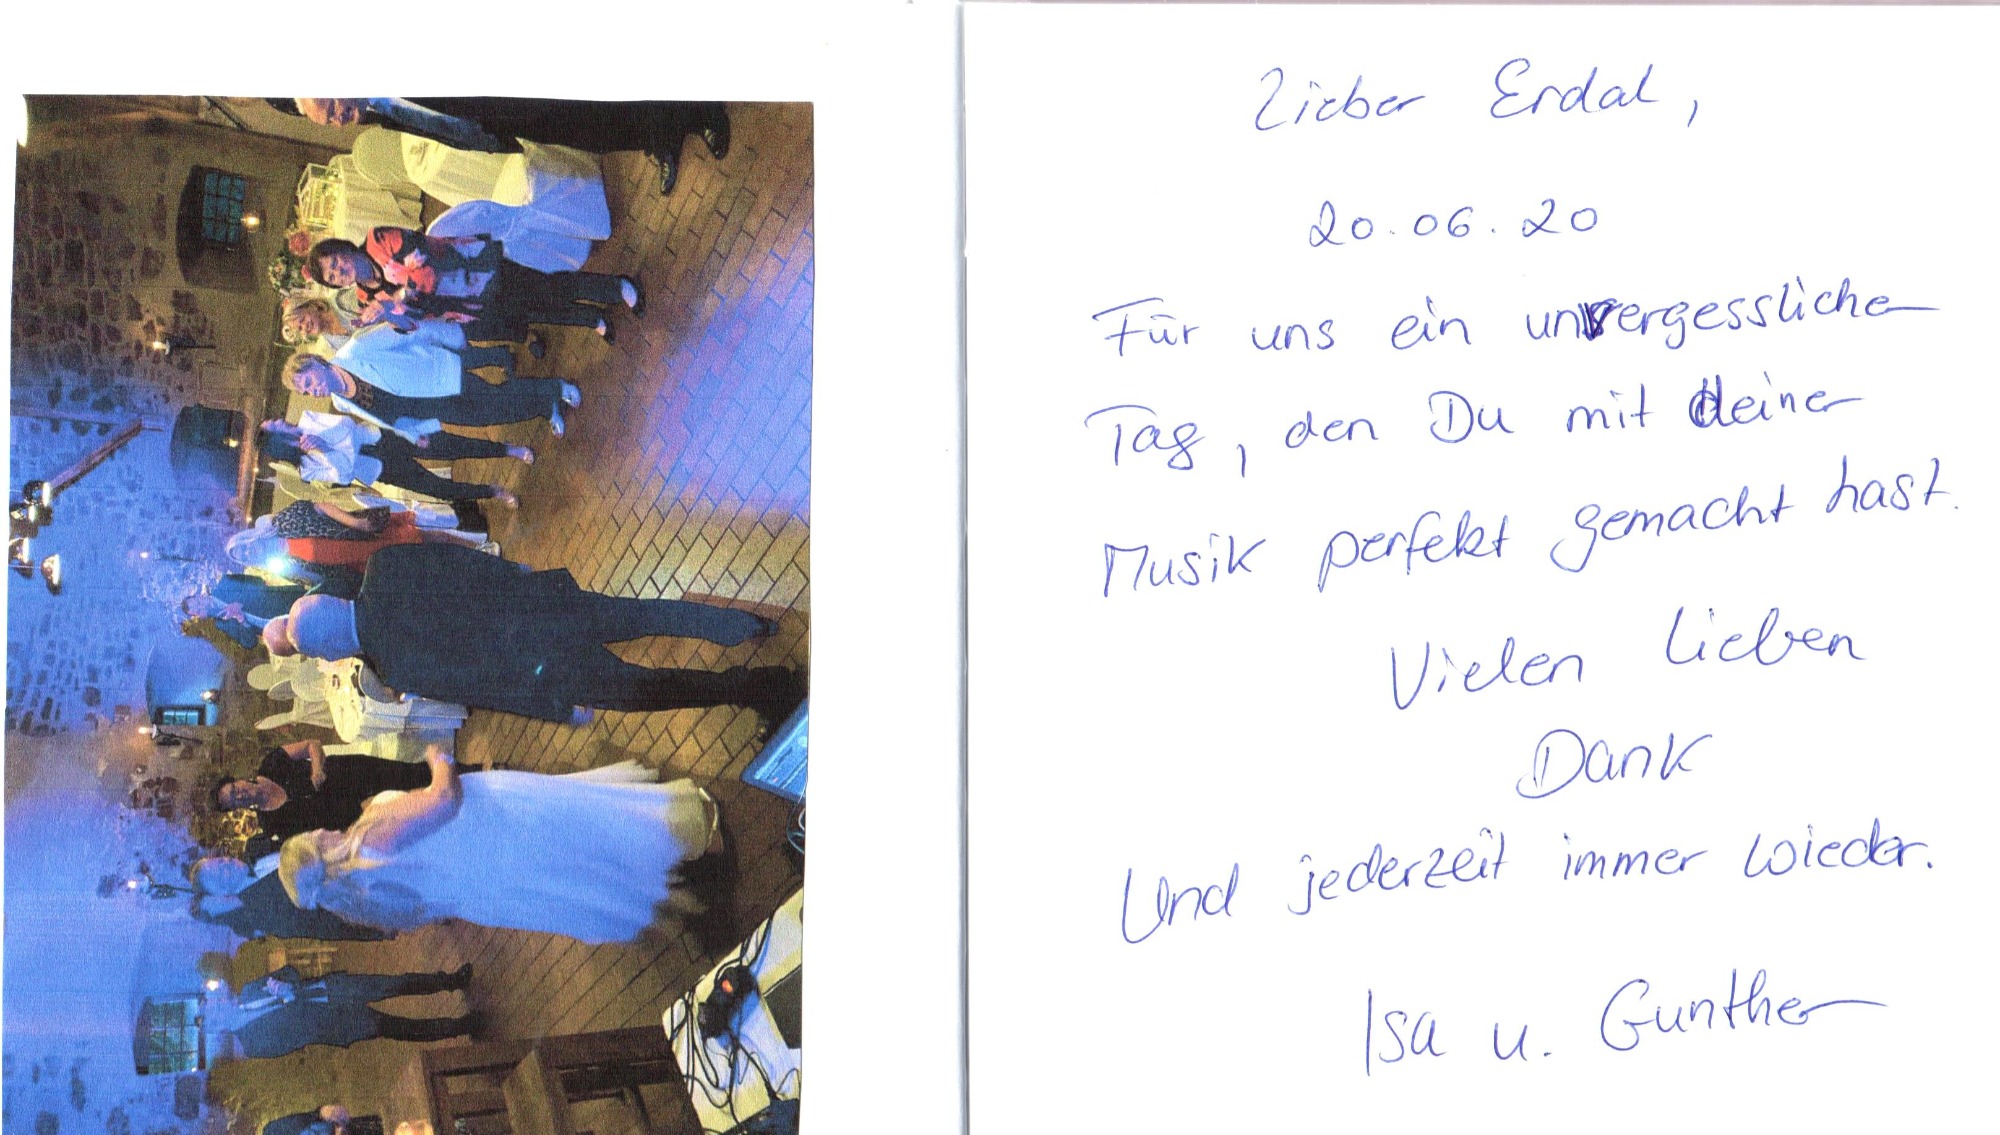 Lieber Erdal,
20.06.20
Für uns ein unvergesslicher
Tag, den Du mit deiner
Musik perfekt gemacht hast.
Vielen lieben
Dank
Und jederzeit immer wieder.
Isa u. Gunther